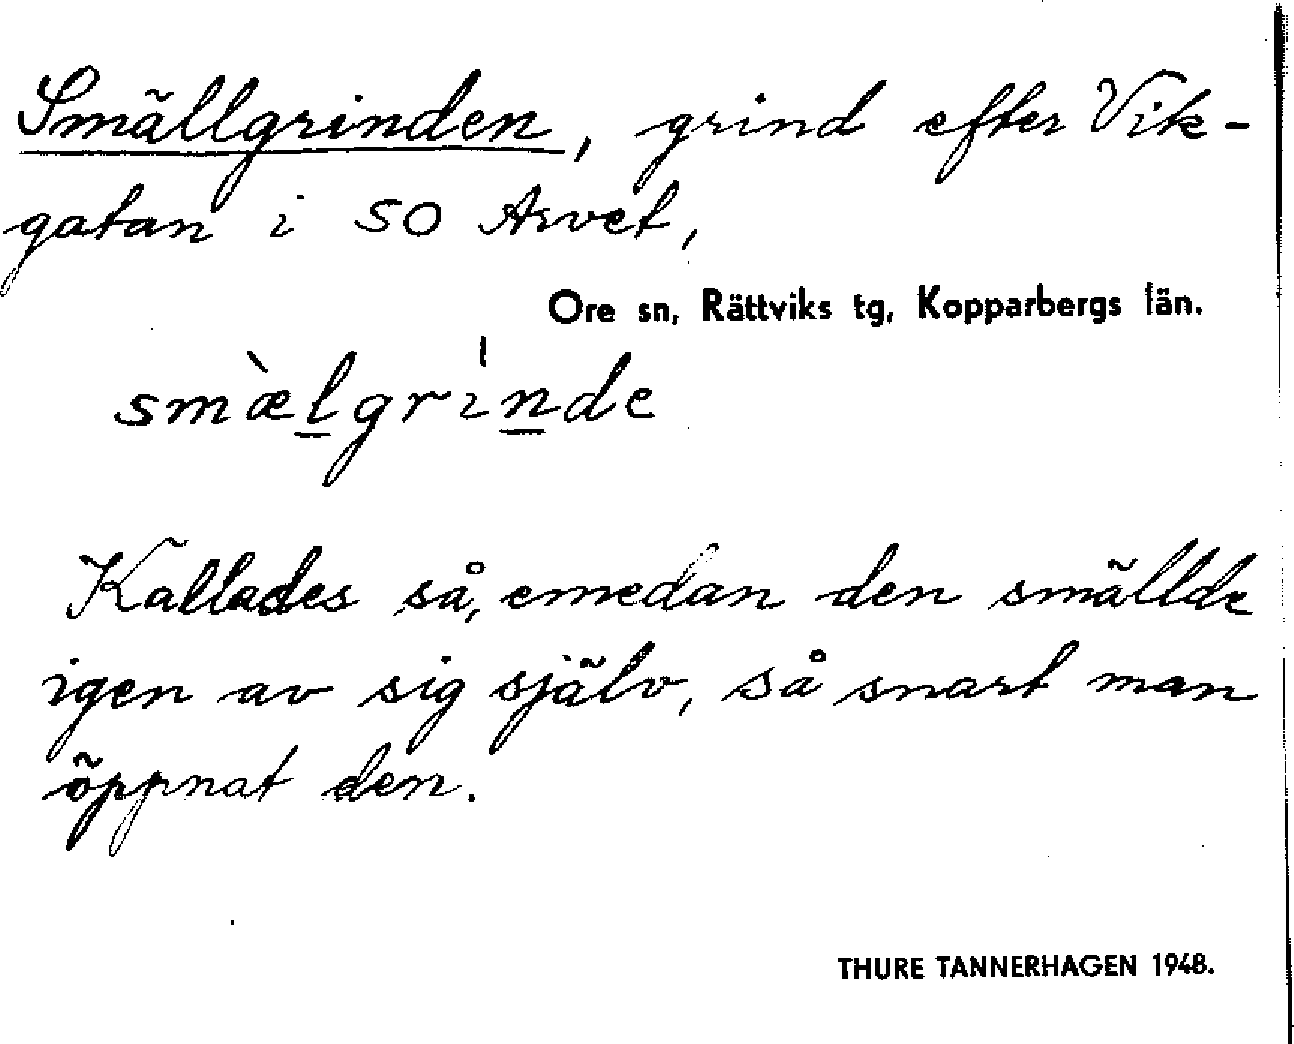 Smällgrinden, grind efter Vik-
gatan i SO Arvet,
Ore sn, Rättviks tg, Kopparbergs län.
smæ̀lgrı̍nde
Kallades så, emedan den smällde
igen av sig själv, så snart man
öppnat den.
THURE TANNERHAGEN 1948.